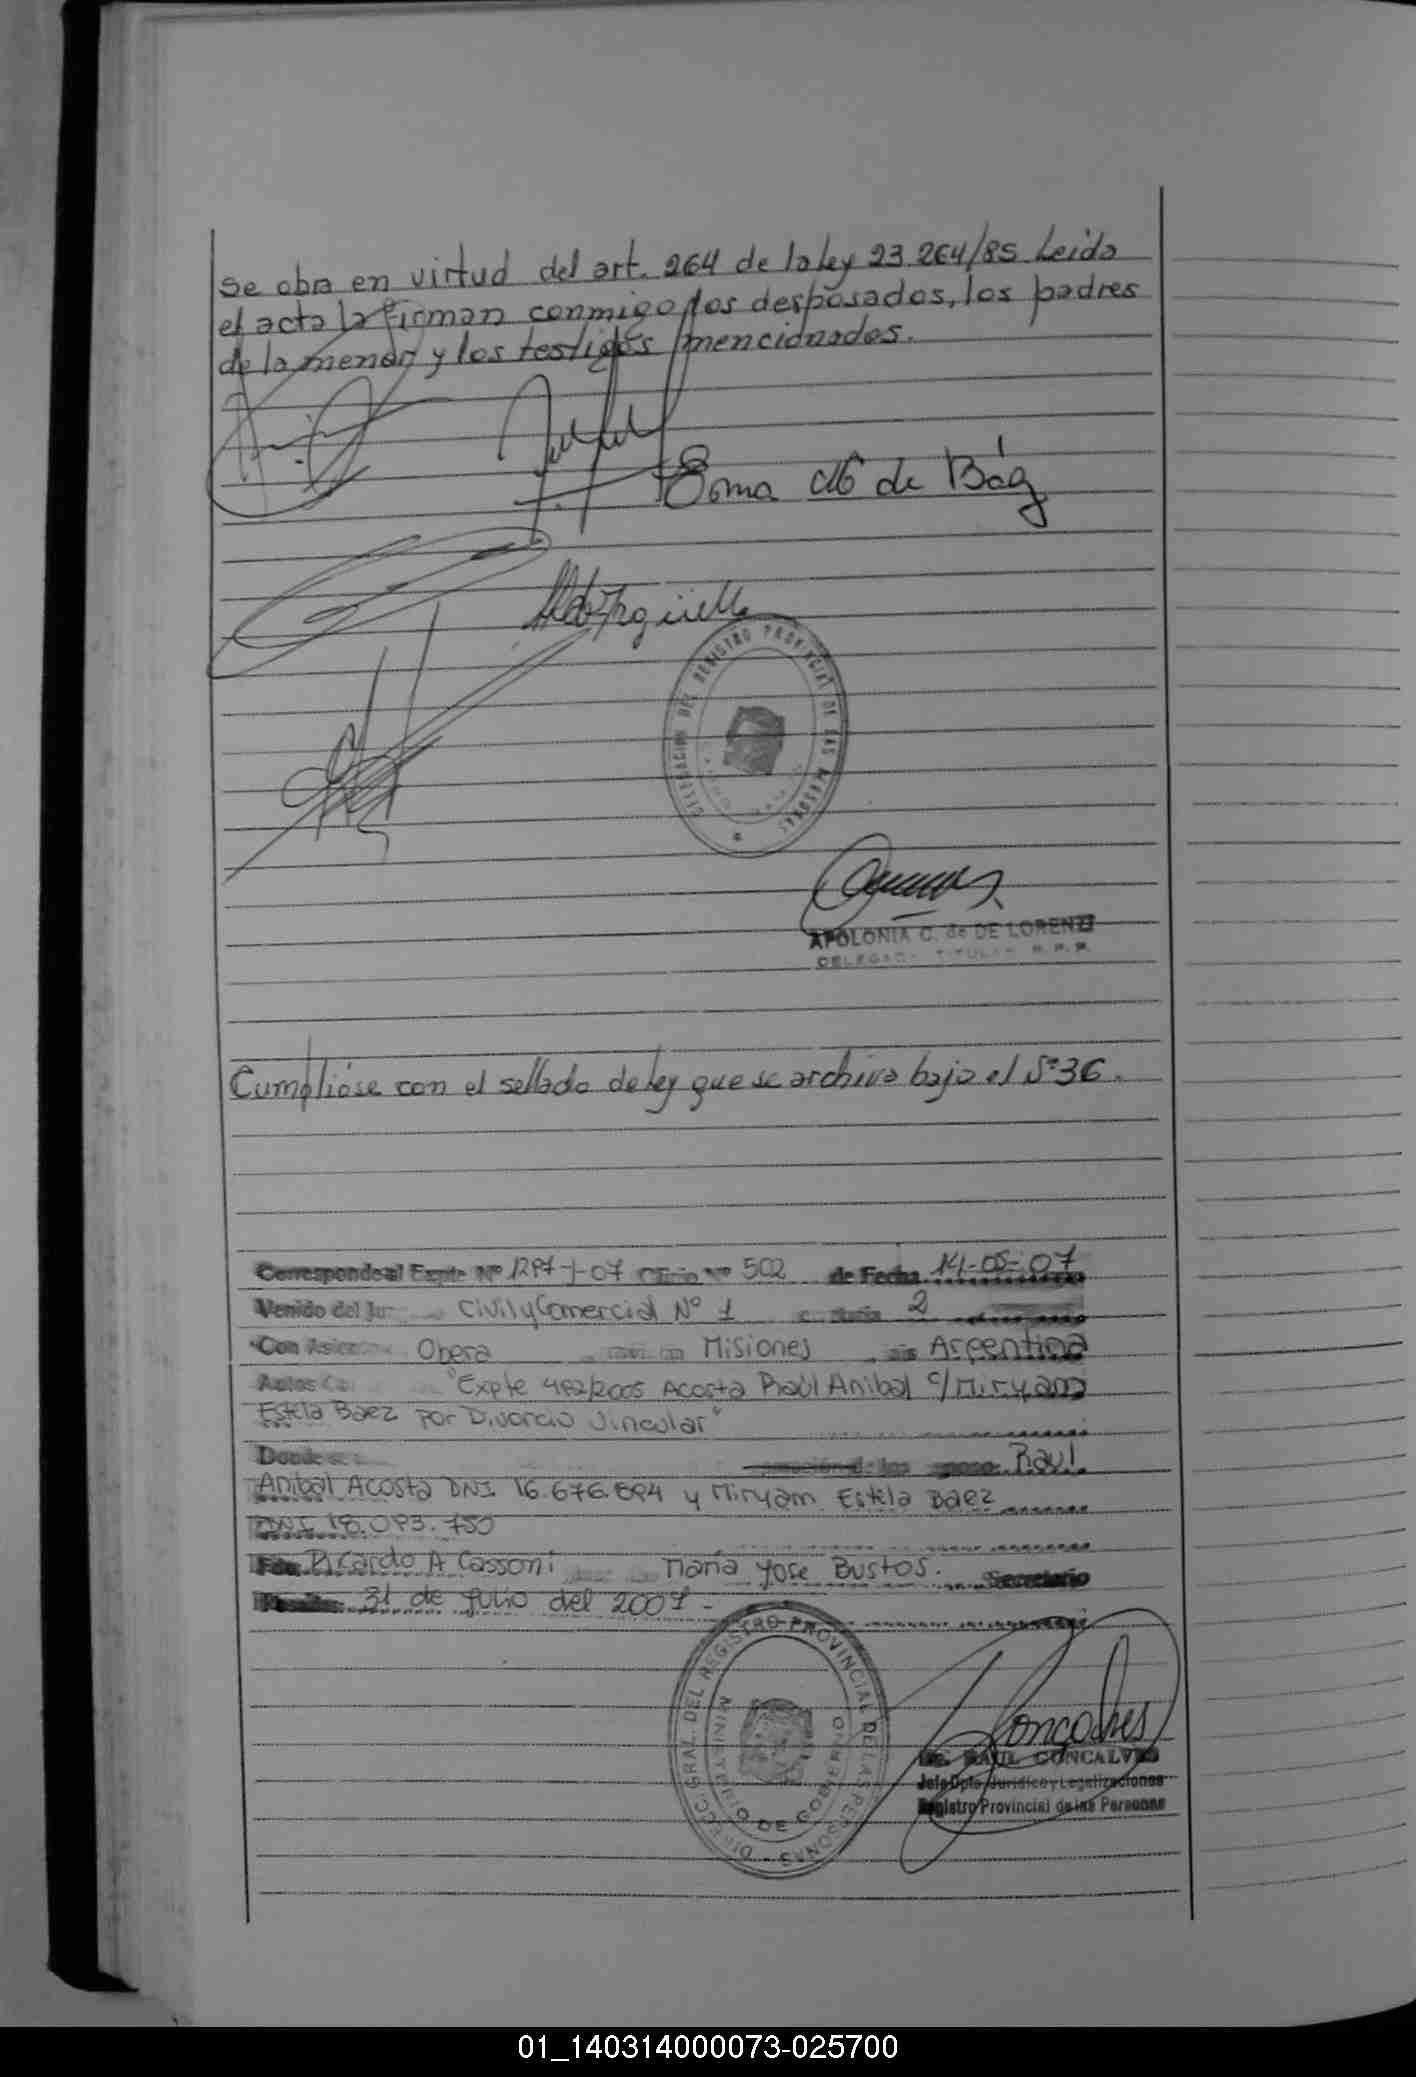 Se obra en virtud del art. 264 de la ley 23.264/85 Leida
el acta la firman conmigo los desposados, los padres
de la menor y los testigos mencionados.
de Báez
DELEGACION DEL REGISTRO PROVINCIAL DE LAS PERSONAS
APOLONIA C. de DE LORENZI
DELEGADA TITULAR R.P.P.
Cumplióse con el sellado de ley que se archiva bajo el Nº 36.
Corresponde al Expte Nº 07 Oficio Nº 502 de Fecha 14-05-07
Venido del Civil y Comercial Nº 1 2
Con Obera Misiones Argentina
Autos "Expte 482/2005 Acosta Raúl Anibal c/ Miryam
Estela Baez por Divorcio Vincular"
Donde Raul
Anibal Acosta DNI 16.676.894 y Miryam Estela Baez
DNI 18.093.750
Ricardo A Cassoni María Jose Bustos. Secretario
31 de Julio del 2007-
DIRECC. GRAL. DEL REGISTRO PROVINCIAL DE LAS PERSONAS
MINISTERIO DE GOBIERNO
Goncalves
Dr. RAUL GONCALVES
Jefe Dpto. Jurídico y Legalizaciones
Registro Provincial de las Personas
01_140314000073-025700